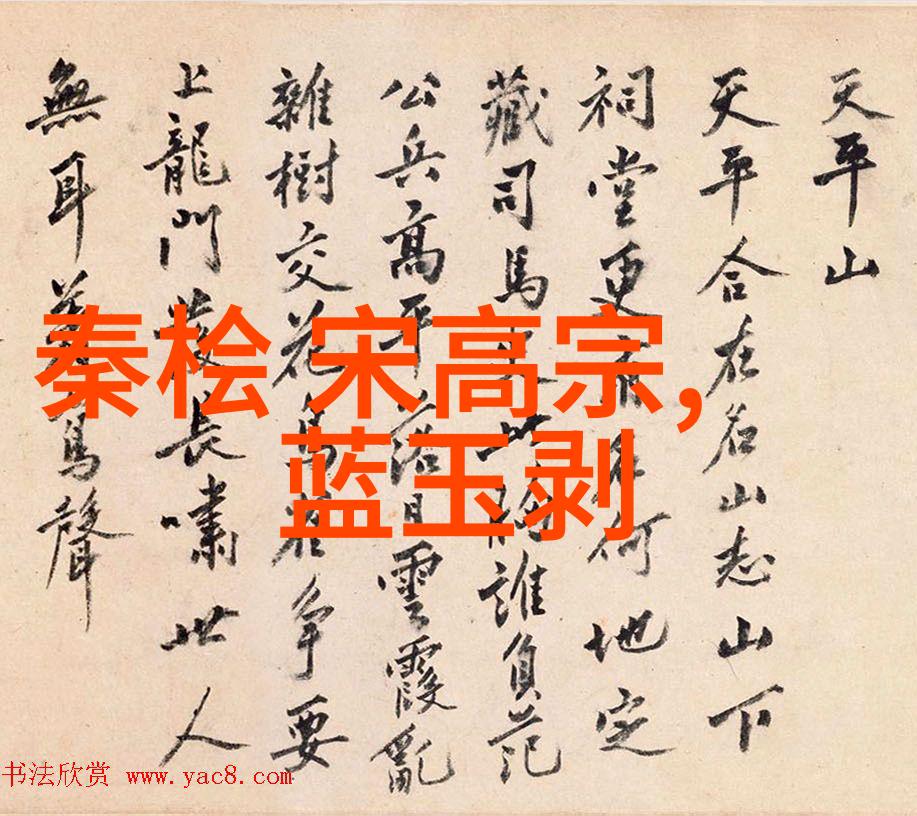 天平山
天平合在名山志山下
祠堂更有何地定
藏司馬史此胸誰負范
公兵高平落日雲霞亂
雜樹交花鳥雀爭要
上龍門發長嘯世人
無耳聲
秦桧 宋高宗,
蓝玉剥
书法欣赏 www.yac8.com